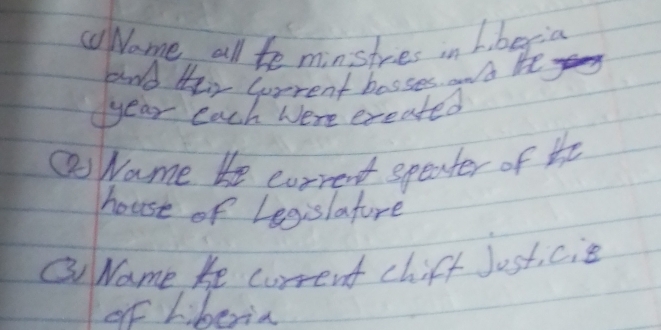 (1) Name all te ministries in Liberia
and their current bosses and the
year each Were created
(2) Name the current speater of the
house of Legislature
(3) Name the current chift justicie
of Liberia